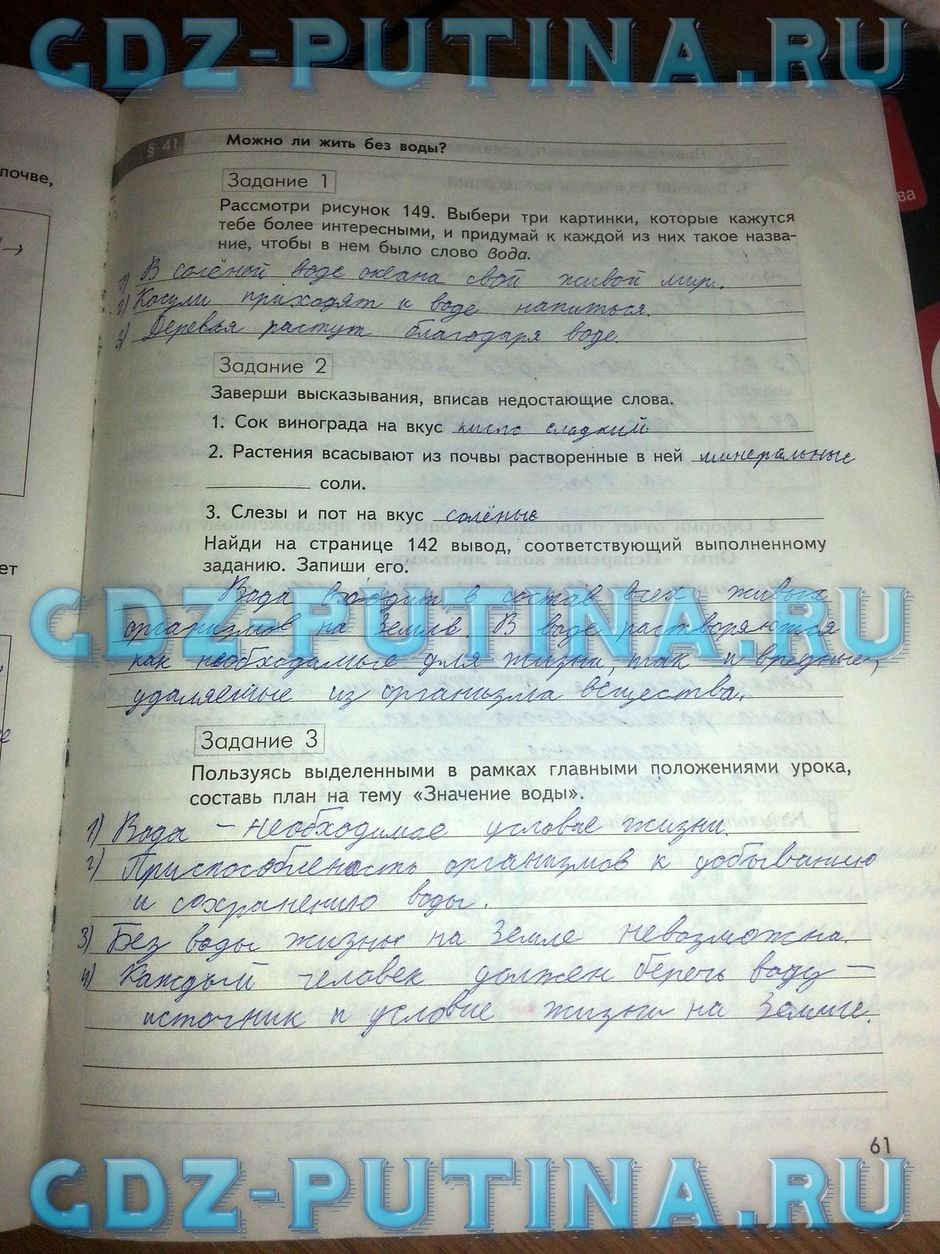 GDZ-PUTINA.RU
§ 41 Можно ли жить без воды?
почве,
Задание 1
Рассмотри рисунок 149. Выбери три картинки, которые кажутся
тебе более интересными, и придумай к каждой из них такое назва-
ние, чтобы в нем было слово вода.
1) В солёной воде океана свой живой мир.
2) Косули приходят к воде напиться.
3) Деревья растут благодаря воде.
Задание 2
Заверши высказывания, вписав недостающие слова.
1. Сок винограда на вкус кисло сладкий
2. Растения всасывают из почвы растворенные в ней минеральные
соли.
3. Слезы и пот на вкус солёные
Найди на странице 142 вывод, соответствующий выполненному
заданию. Запиши его.
ет
GDZ-PUTINA.RU
Вода входит в состав всех живых
организмов на Земле. В воде растворяются
как необходимые для жизни, так и вредные,
удаляемые из организма вещества.
Задание 3
Пользуясь выделенными в рамках главными положениями урока,
составь план на тему «Значение воды».
1) Вода – необходимое условие жизни.
2) Приспособленость организмов к добыванию
и сохранению воды.
3) Без воды жизнь на Земле невозможна.
4) Каждый человек должен беречь воду –
источник и условие жизни на Земле.
61
GDZ-PUTINA.RU